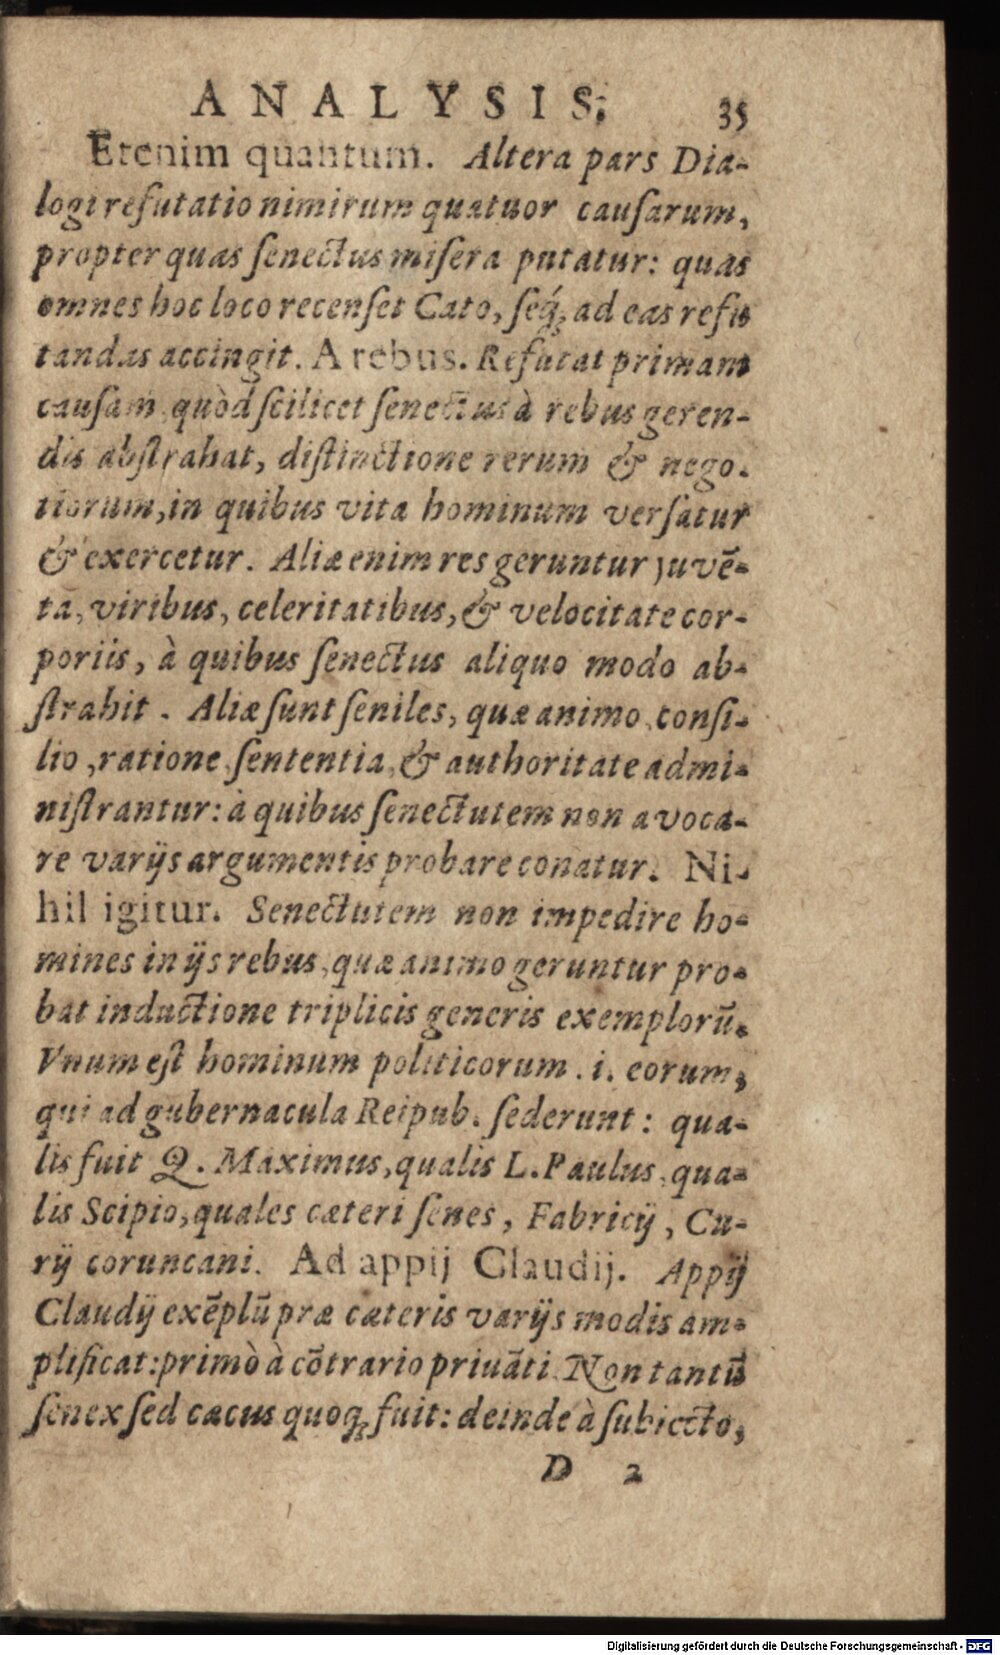 ANALYSIS. 35
Etenim quantum. Altera pars Dia-
logi refutatio nimirum quatuor cauſarum,
propter quas ſenectus miſera putatur: quas
omnes hoc loco recenſet Cato, ſeq́; ad eas refu
tandas accingit. A rebus. Refutat primam
cauſam quòd ſcilicet ſenectus à rebus geren-
dis abſtrahat, diſtinctione rerum & nego-
tiorum, in quibus vita hominum verſatur
& exercetur. Aliæ enim res geruntur juvẽ-
ta, viribus, celeritatibus, & velocitate cor-
poriis, à quibus ſenectus aliquo modo ab-
ſtrahit. Aliæ ſunt ſeniles, quæ animo, conſi-
lio, ratione, ſententia, & authoritate admi-
niſtrantur: à quibus ſenectutem non avoca-
re varijs argumentis probare conatur. Ni-
hil igitur. Senectutem non impedire ho-
mines in ijs rebus, quæ animo geruntur pro-
bat inductione triplicis generis exemplorũ.
Vnum eſt hominum politicorum. i. eorum,
qui ad gubernacula Reipub. ſederunt: qua-
lis fuit Q. Maximus, qualis L. Paulus, qua-
lis Scipio, quales cæteri ſenes, Fabricij, Cu-
rij coruncani. Ad appij Claudij. Appij
Claudij exẽplũ præ cæteris varijs modis am-
plificat: primò à cõtrario priuãti. Non tantũ
ſenex ſed cæcus quoq; fuit: deinde à ſubiecto,
D 2
Digitalisierung gefördert durch die Deutsche Forschungsgemeinschaft - DFG